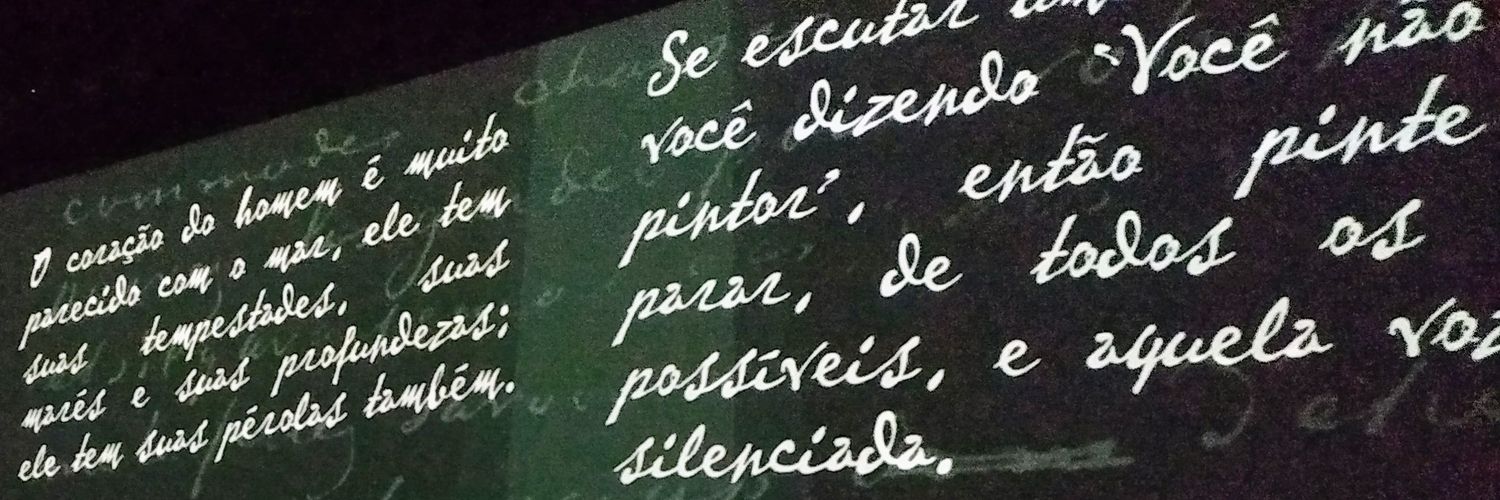 O coração do homem é muito
parecido com o mar, ele tem
suas tempestades, suas
marés e suas profundezas;
ele tem suas pérolas também.
Se escutar
você dizendo "Você não
pintor", então pinte
parar, de todos os
possíveis, e aquela
silenciada.